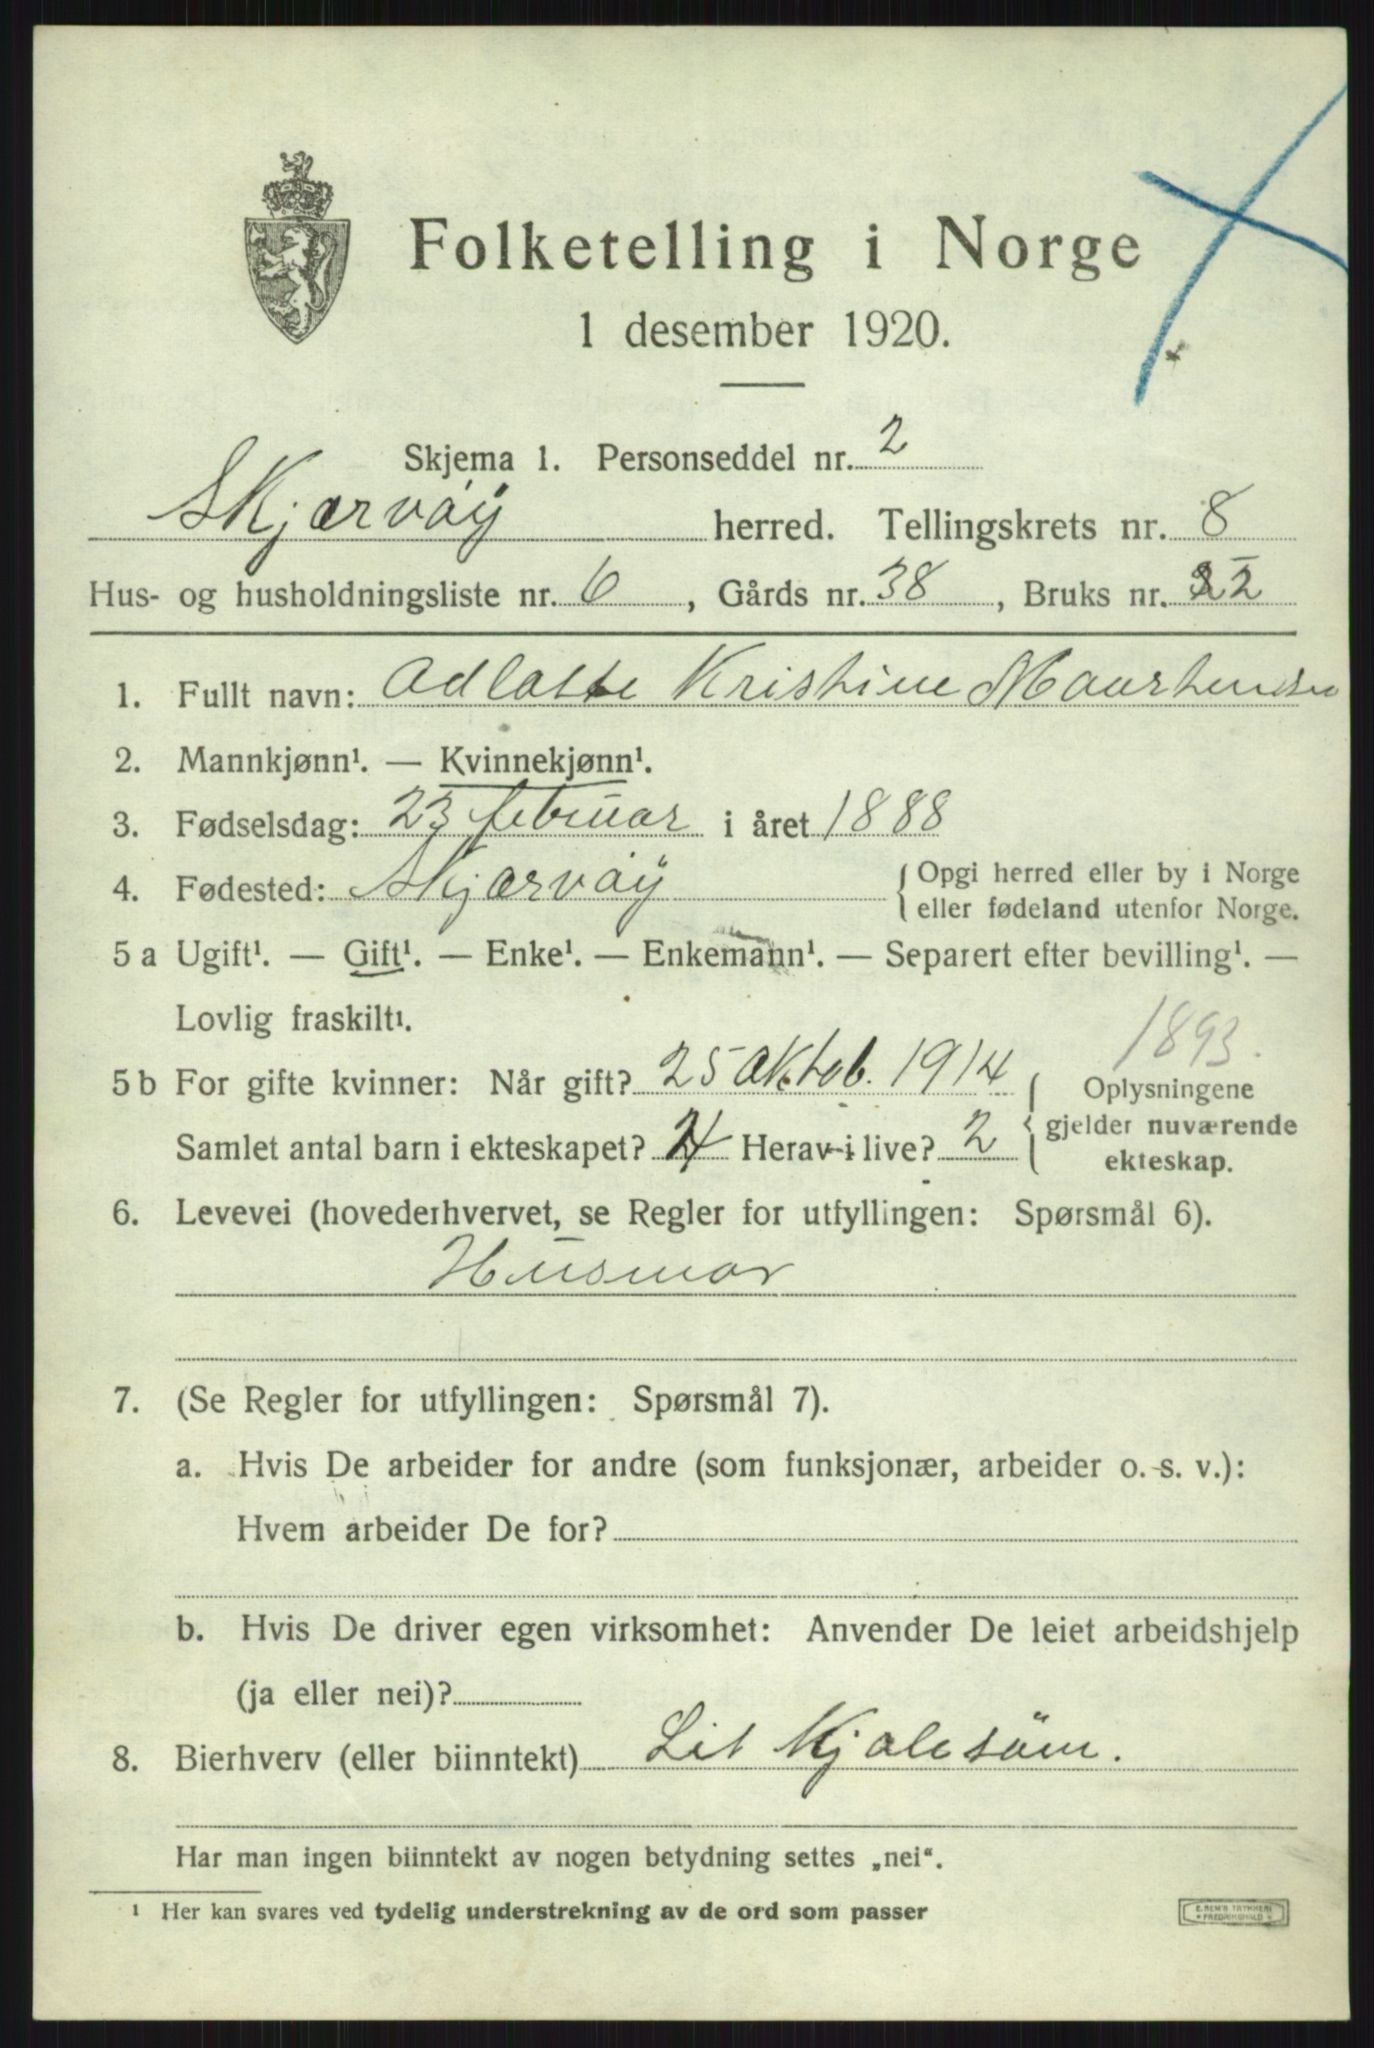 Folketelling i Norge
1 desember 1920.
Skjema 1. Personseddel nr. 2
Skjærvöy herred. Tellingskrets nr. 8
Hus- og husholdningsliste nr. 6, Gårds nr. 38, Bruks nr. 2
1. Fullt navn: Kristine
2. Mannkjønn¹. — Kvinnekjønn¹.
3. Fødselsdag: 23 februar i året 1888
4. Fødested: Skjærvöy { Opgi herred eller by i Norge
eller fødeland utenfor Norge.
5 a Ugift¹. — Gift¹. — Enke¹. — Enkemann¹. — Separert efter bevilling¹. —
Lovlig fraskilt¹.
1893.
5 b For gifte kvinner: Når gift? 25 Oktob. 1914 { Oplysningene
gjelder nuværende
ekteskap.
Samlet antal barn i ekteskapet? Herav i live? 2
6. Levevei (hovederhvervet, se Regler for utfyllingen: Spørsmål 6).
Husmor
7. (Se Regler for utfyllingen: Spørsmål 7).
a. Hvis De arbeider for andre (som funksjonær, arbeider o. s. v.):
Hvem arbeider De for?
b. Hvis De driver egen virksomhet: Anvender De leiet arbeidshjelp
(ja eller nei)?
8. Bierhverv (eller biinntekt) Lit Kjolesöm.
Har man ingen biinntekt av nogen betydning settes „nei“.
¹ Her kan svares ved tydelig understrekning av de ord som passer